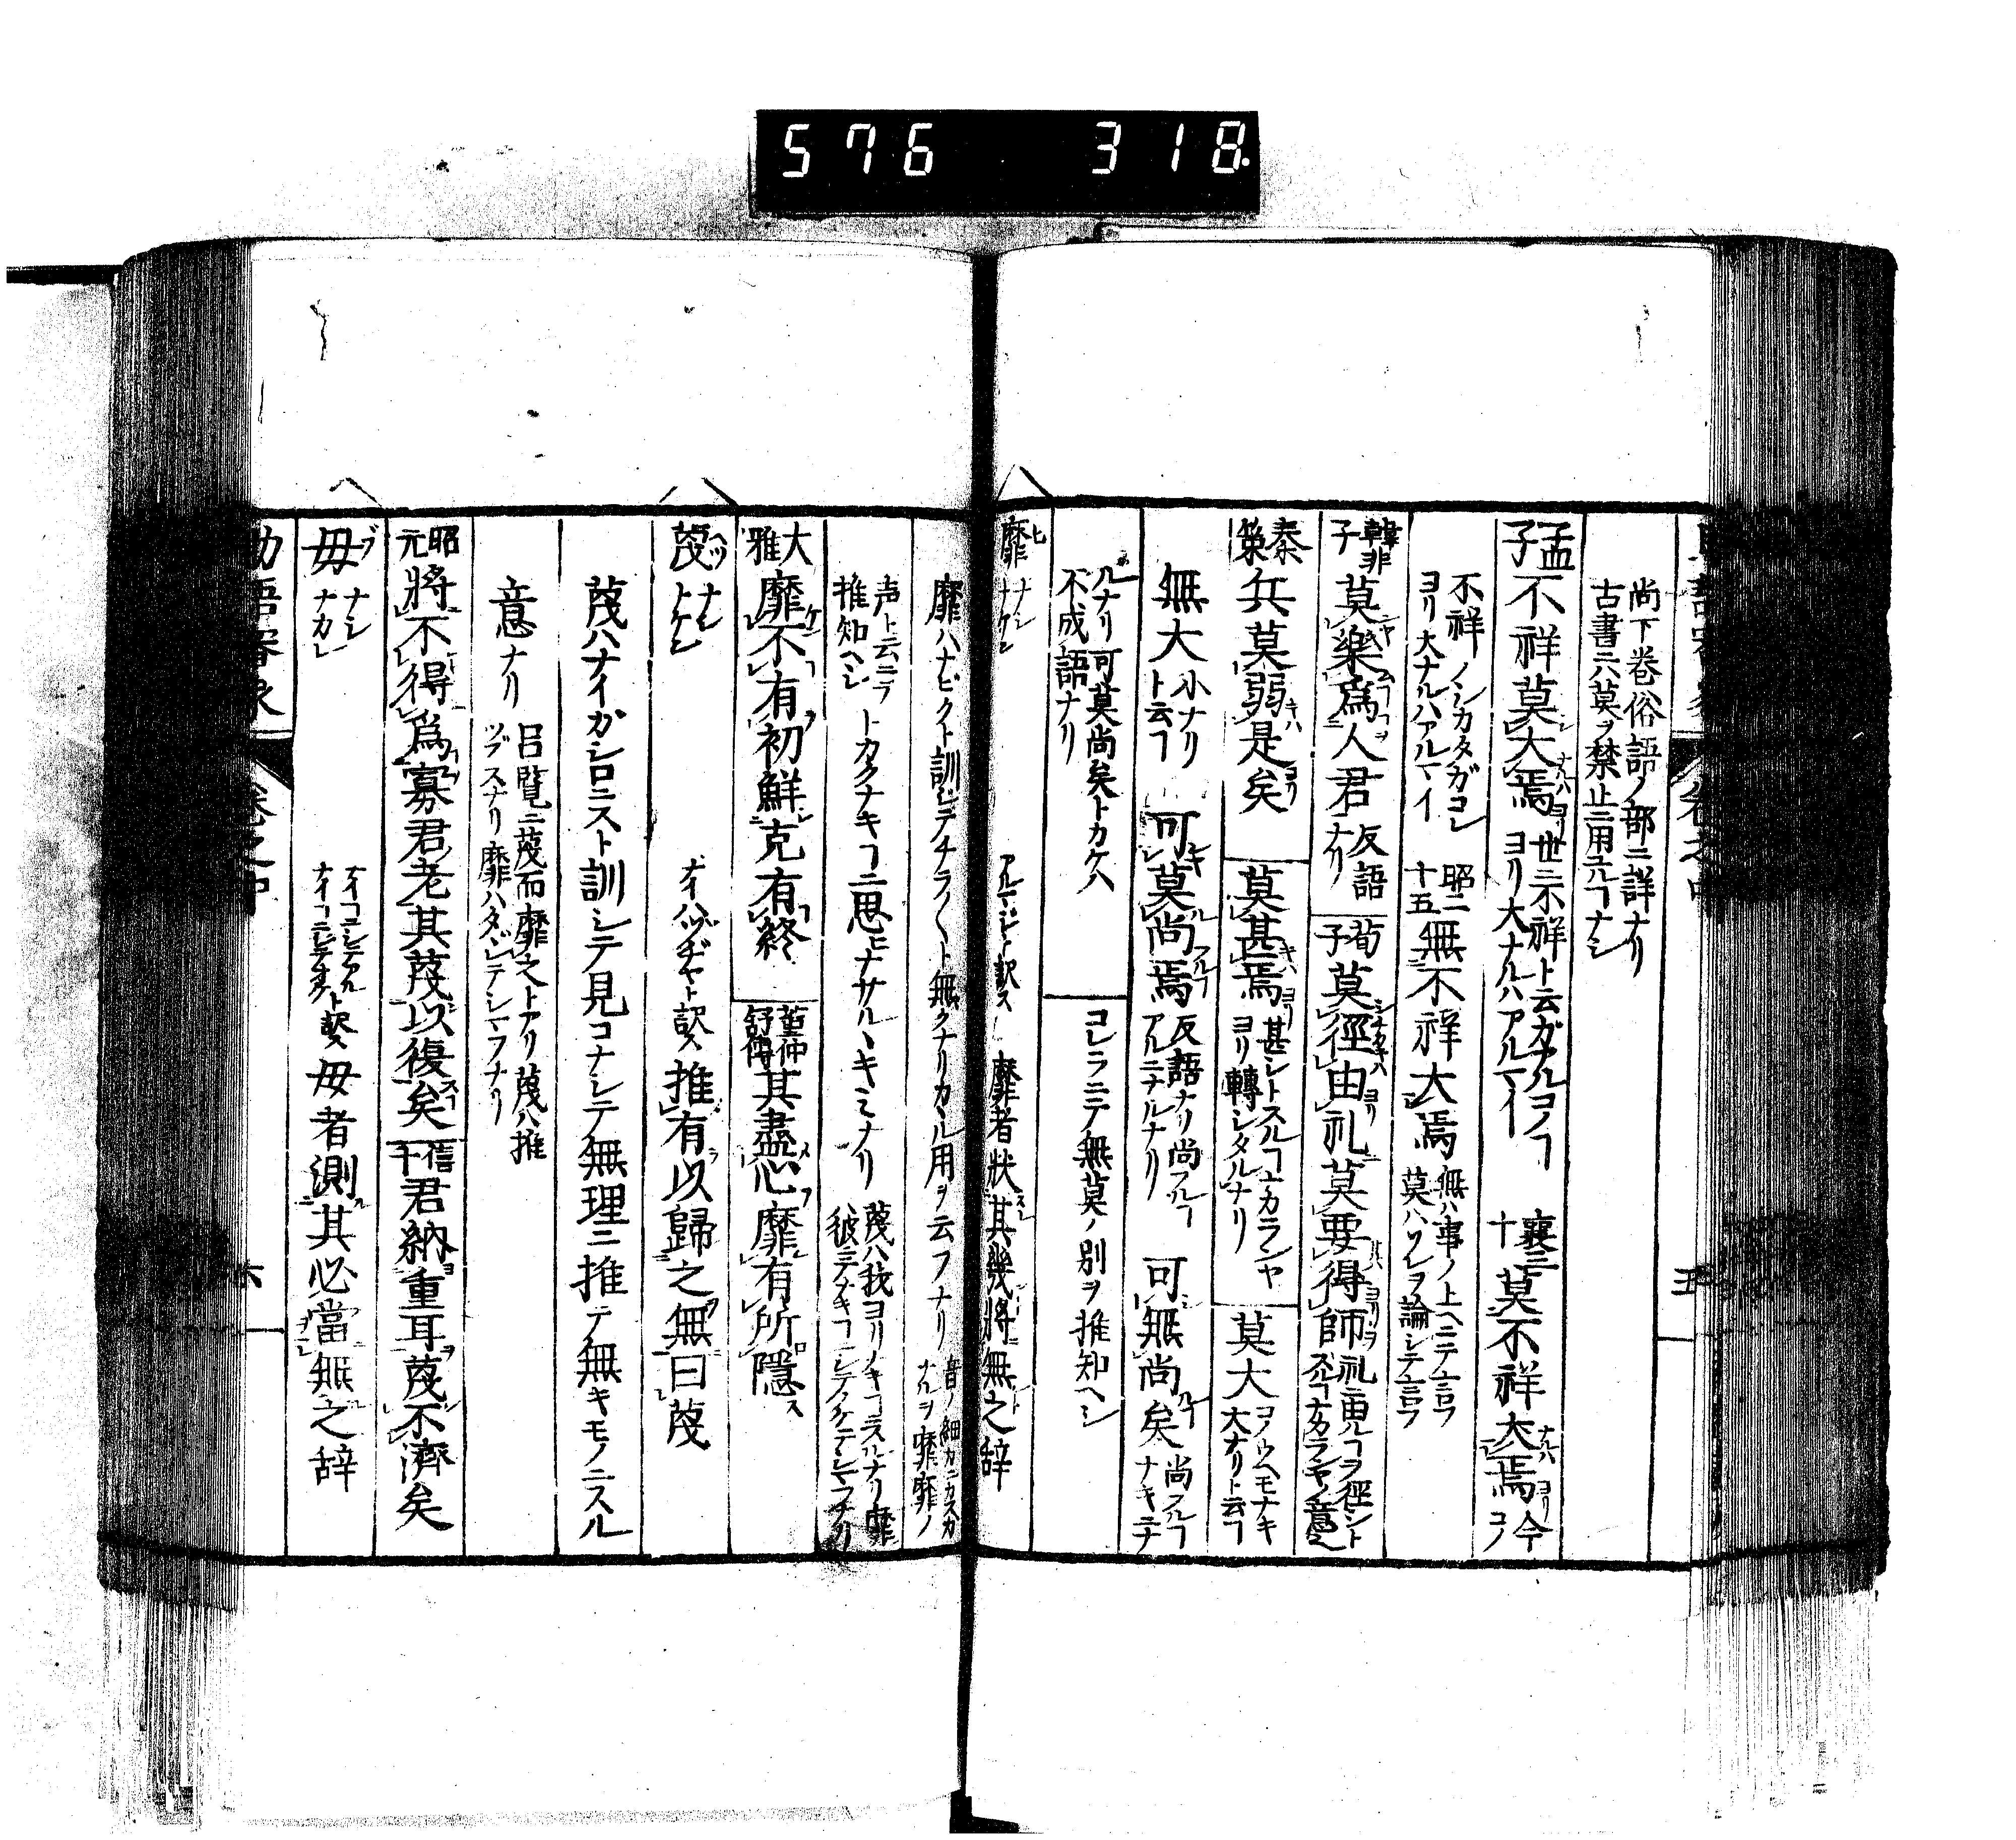 576 318
尚下巻俗語ノ部ニ詳ナリ
古書ニハ莫ヲ禁止ニ用ユルヿナシ
孟子 不祥莫大焉 世ニ不祥ト云ガアルコノヿヨリ大ナルハアルマイ 襄三十 莫不祥大焉 今コノ
不祥ノシカタガコレヨリ大ナルハアルマイ 昭二十五 無不祥大焉 無ハ事ノ上ヘニテ言フ莫ハワレヲ論シテ言フ
韓非子 莫樂爲人君 反語ナリ 荀子 莫徑由礼莫要得師 礼ニ由ルヿヲ徑シト
秦策 兵莫弱是矣 莫甚焉 甚シトスルヿナカランヤヨリ轉シタルナリ 莫大 コノウヘモナキ大ナリト云フ
無大 小ナリト云フ 可莫尚焉 反語ナリ尚フルヿアルニナルナリ 可無尚矣 尚フルヿナキニナ
ルナリ可莫尚矣トカケハ不成語ナリ コレラニテ無莫ノ別ヲ推知ヘシ
靡 ナシ ナケン アルマジト訳ス 靡者狀其幾將無之辞
靡ハナビクト訓ジテチラ〱ト無クナリカヽル用ヲ云フナリ 音ノ細カニカスカナルヲ靡靡ノ
声ト云ニテ推知ヘシ トカクナキヿニ思ヒナサルヽキミナリ 蔑ハ我ヨリノキヿニスルナリ靡ハ彼ニテナキヿニ
大雅 靡不有初鮮克有終 董仲舒傳 其盡心靡有所隱
蔑 ナシ ナイハヅヂヤト訳ス 推有以歸之無曰蔑
蔑ハナイガシロニスト訓シテ見コナシテ無理ニ推テ無キモノニスル
意ナリ 呂覧ニ蔑而靡之トアリ蔑ハ推ツブスナリ靡ハタヾシテシマフナリ
昭元 將不得爲寡君老其蔑以復矣 僖十 君納重耳蔑不濟矣
毋 ナシ ナカレ 毋者測其必當無之辞
六